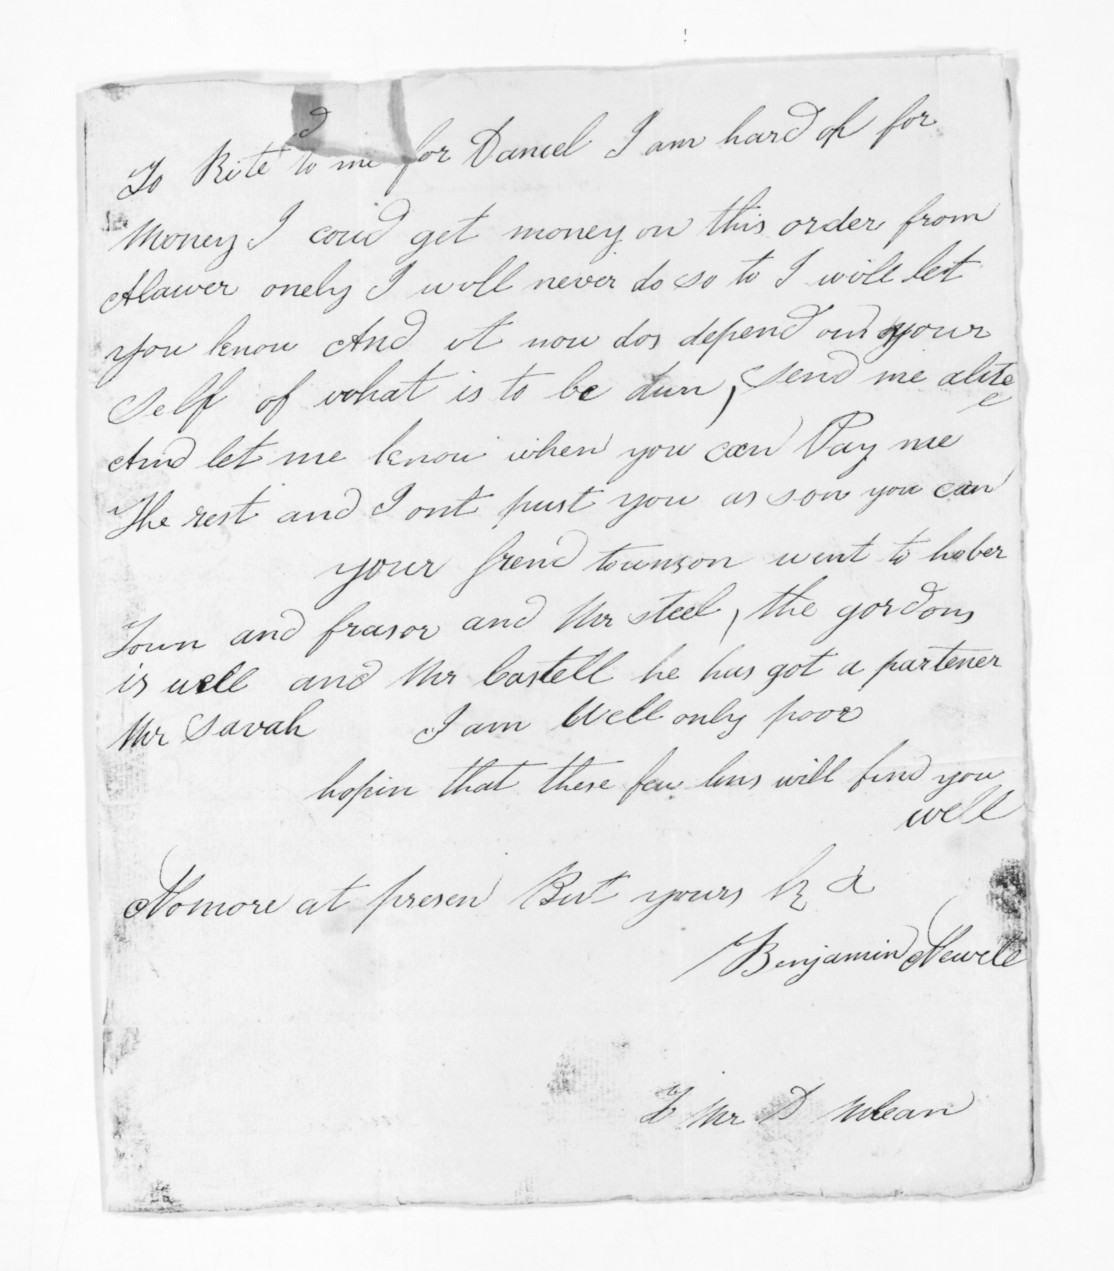 To Rite to me for Daniel I am hard op for
Money I coud get money on this order from
Alawer onely I woll never do so to I will let
you know And it now dos depend on your
Self of what is to be dun, Send me alite
And let me know when you can Pay me
The rest and I ont pust you as son you can
your frend townson went to hober
Town and frasor and Mr steel, the gordons
is well and Mr Castell he has got a partener
Mr Savah I am Well only poor
hopin that these few lins will find you
well
Nomore at presen But yours
Benjamin Newell
To Mr D McLean